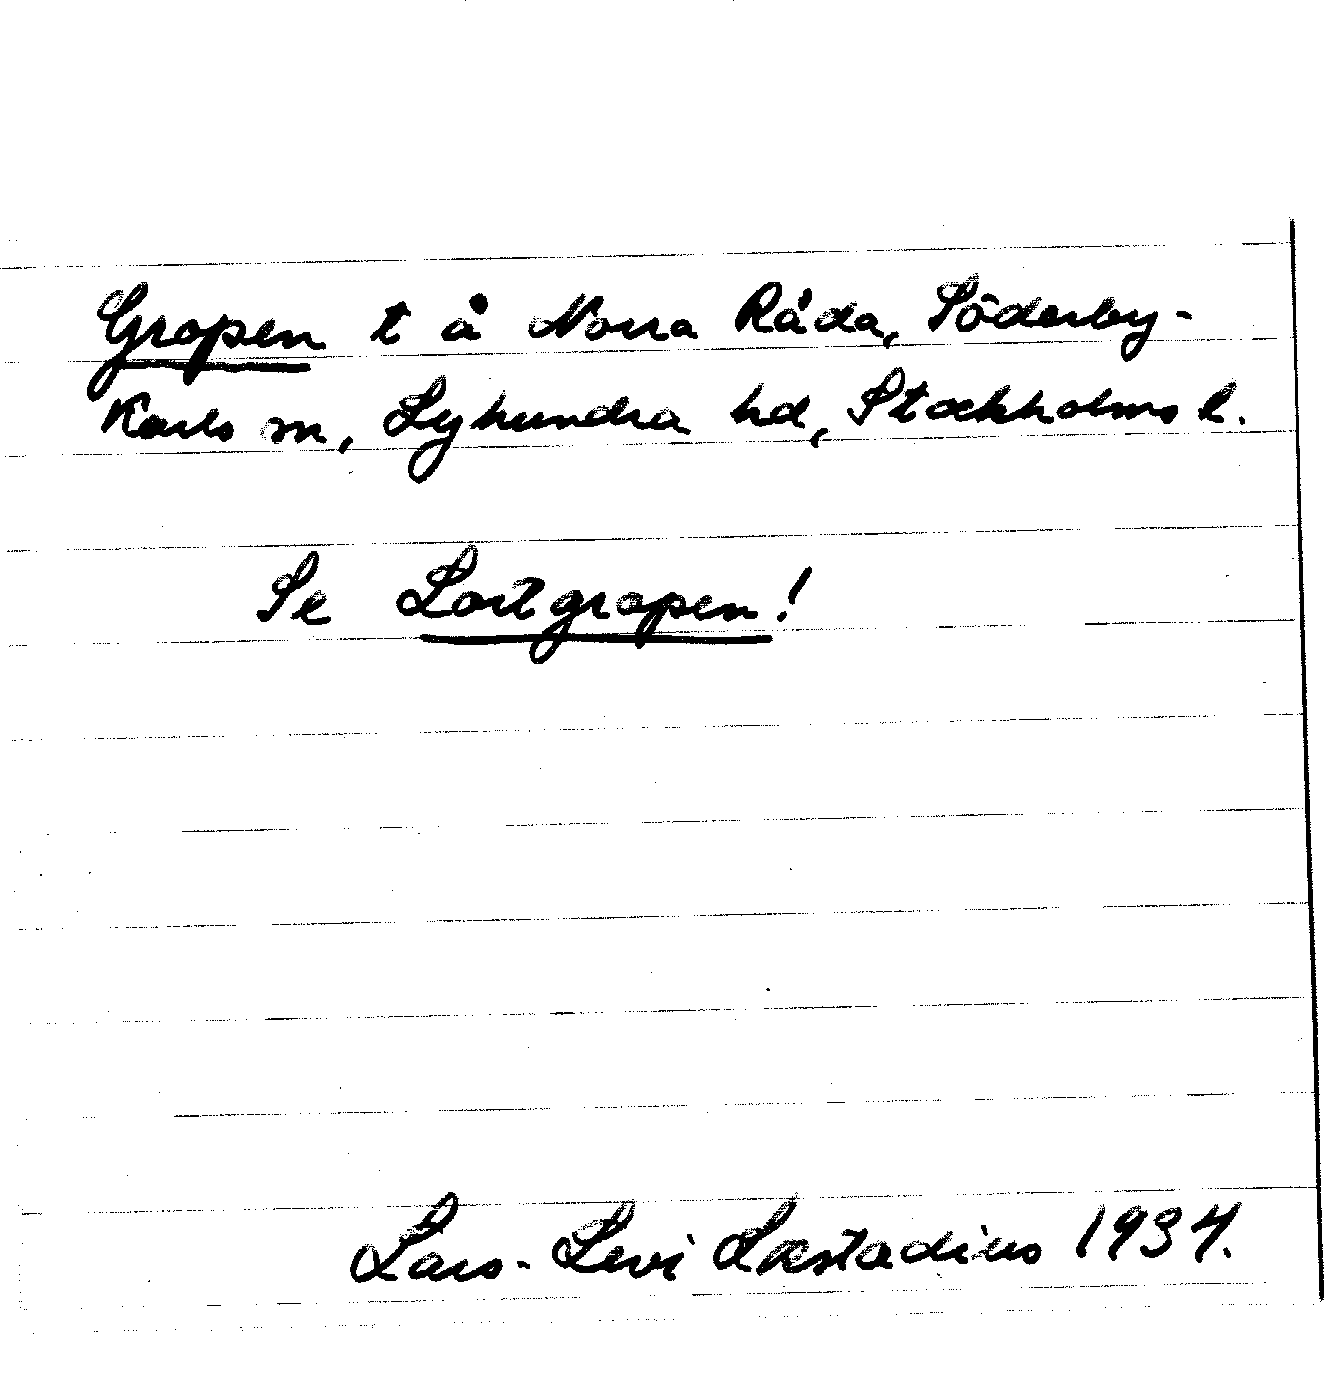 Gropen t å Norra Råda, Söderby-
Karls sn, Lyhundra hd, Stockholms l.
Se Lortgropen!
Lars-Levi Læstadius 1934.